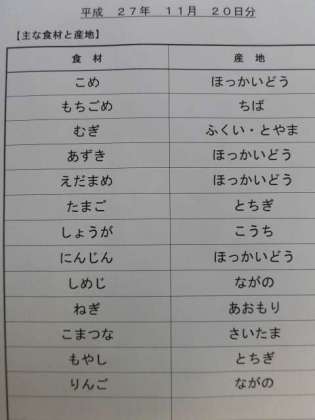 平成　２７年　１１月　２０日分
【主な食材と産地】
食　材　産　地
こめ　ほっかいどう
もちごめ　ちば
むぎ　ふくい・とやま
あずき　ほっかいどう
えだまめ　ほっかいどう
たまご　とちぎ
しょうが　こうち
にんじん　ほっかいどう
しめじ　ながの
ねぎ　あおもり
こまつな　さいたま
もやし　とちぎ
りんご　ながの